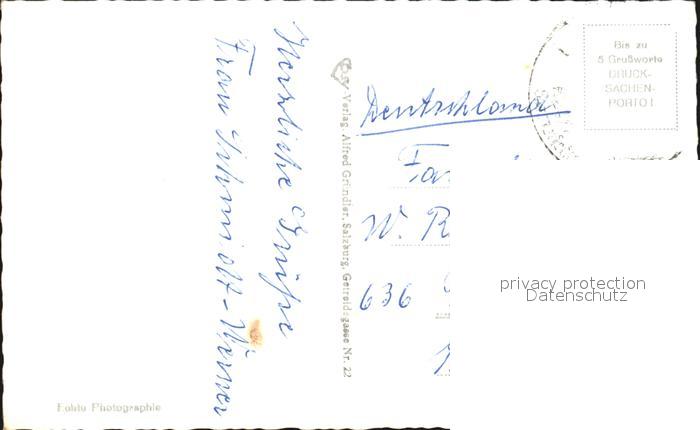 Herzliche Grüße
Frau Schmidt-Werner
Cosy-Verlag Alfred Gründler, Salzburg, Getreidegasse Nr. 22
Echte Photographie
Bis zu
5 Grußworte
DRUCK-
SACHEN-
PORTO!
Deutschland
Fa
W. R
636
privacy protection
Datenschutz